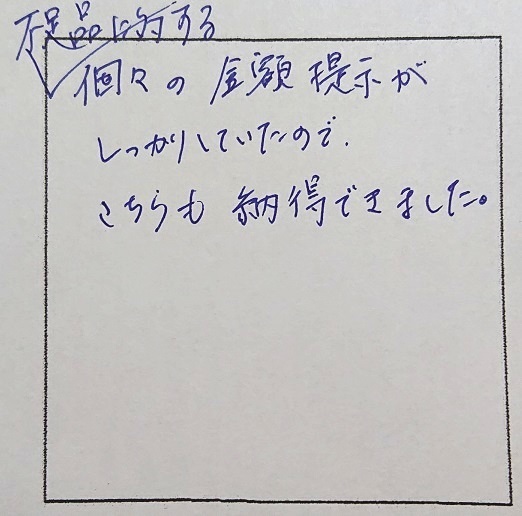 不足品に対する
個々の金額提示が
しっかりしていたので、
こちらも納得できました。